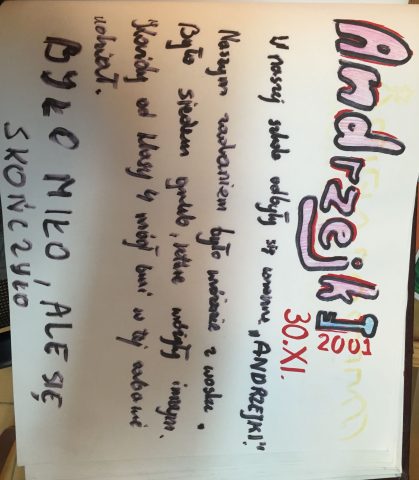 Andrzejki
2001
30.XI.
W naszej szkole odbyły się wróżby „ANDRZEJKI".
Naszym zadaniem było wróżenie z wosku.
Było siedem grup, które wróżyły innym.
Każdy od klasy 4 mógł brać w tej zabawie
udział.
BYŁO MIŁO, ALE SIĘ
SKOŃCZYŁO